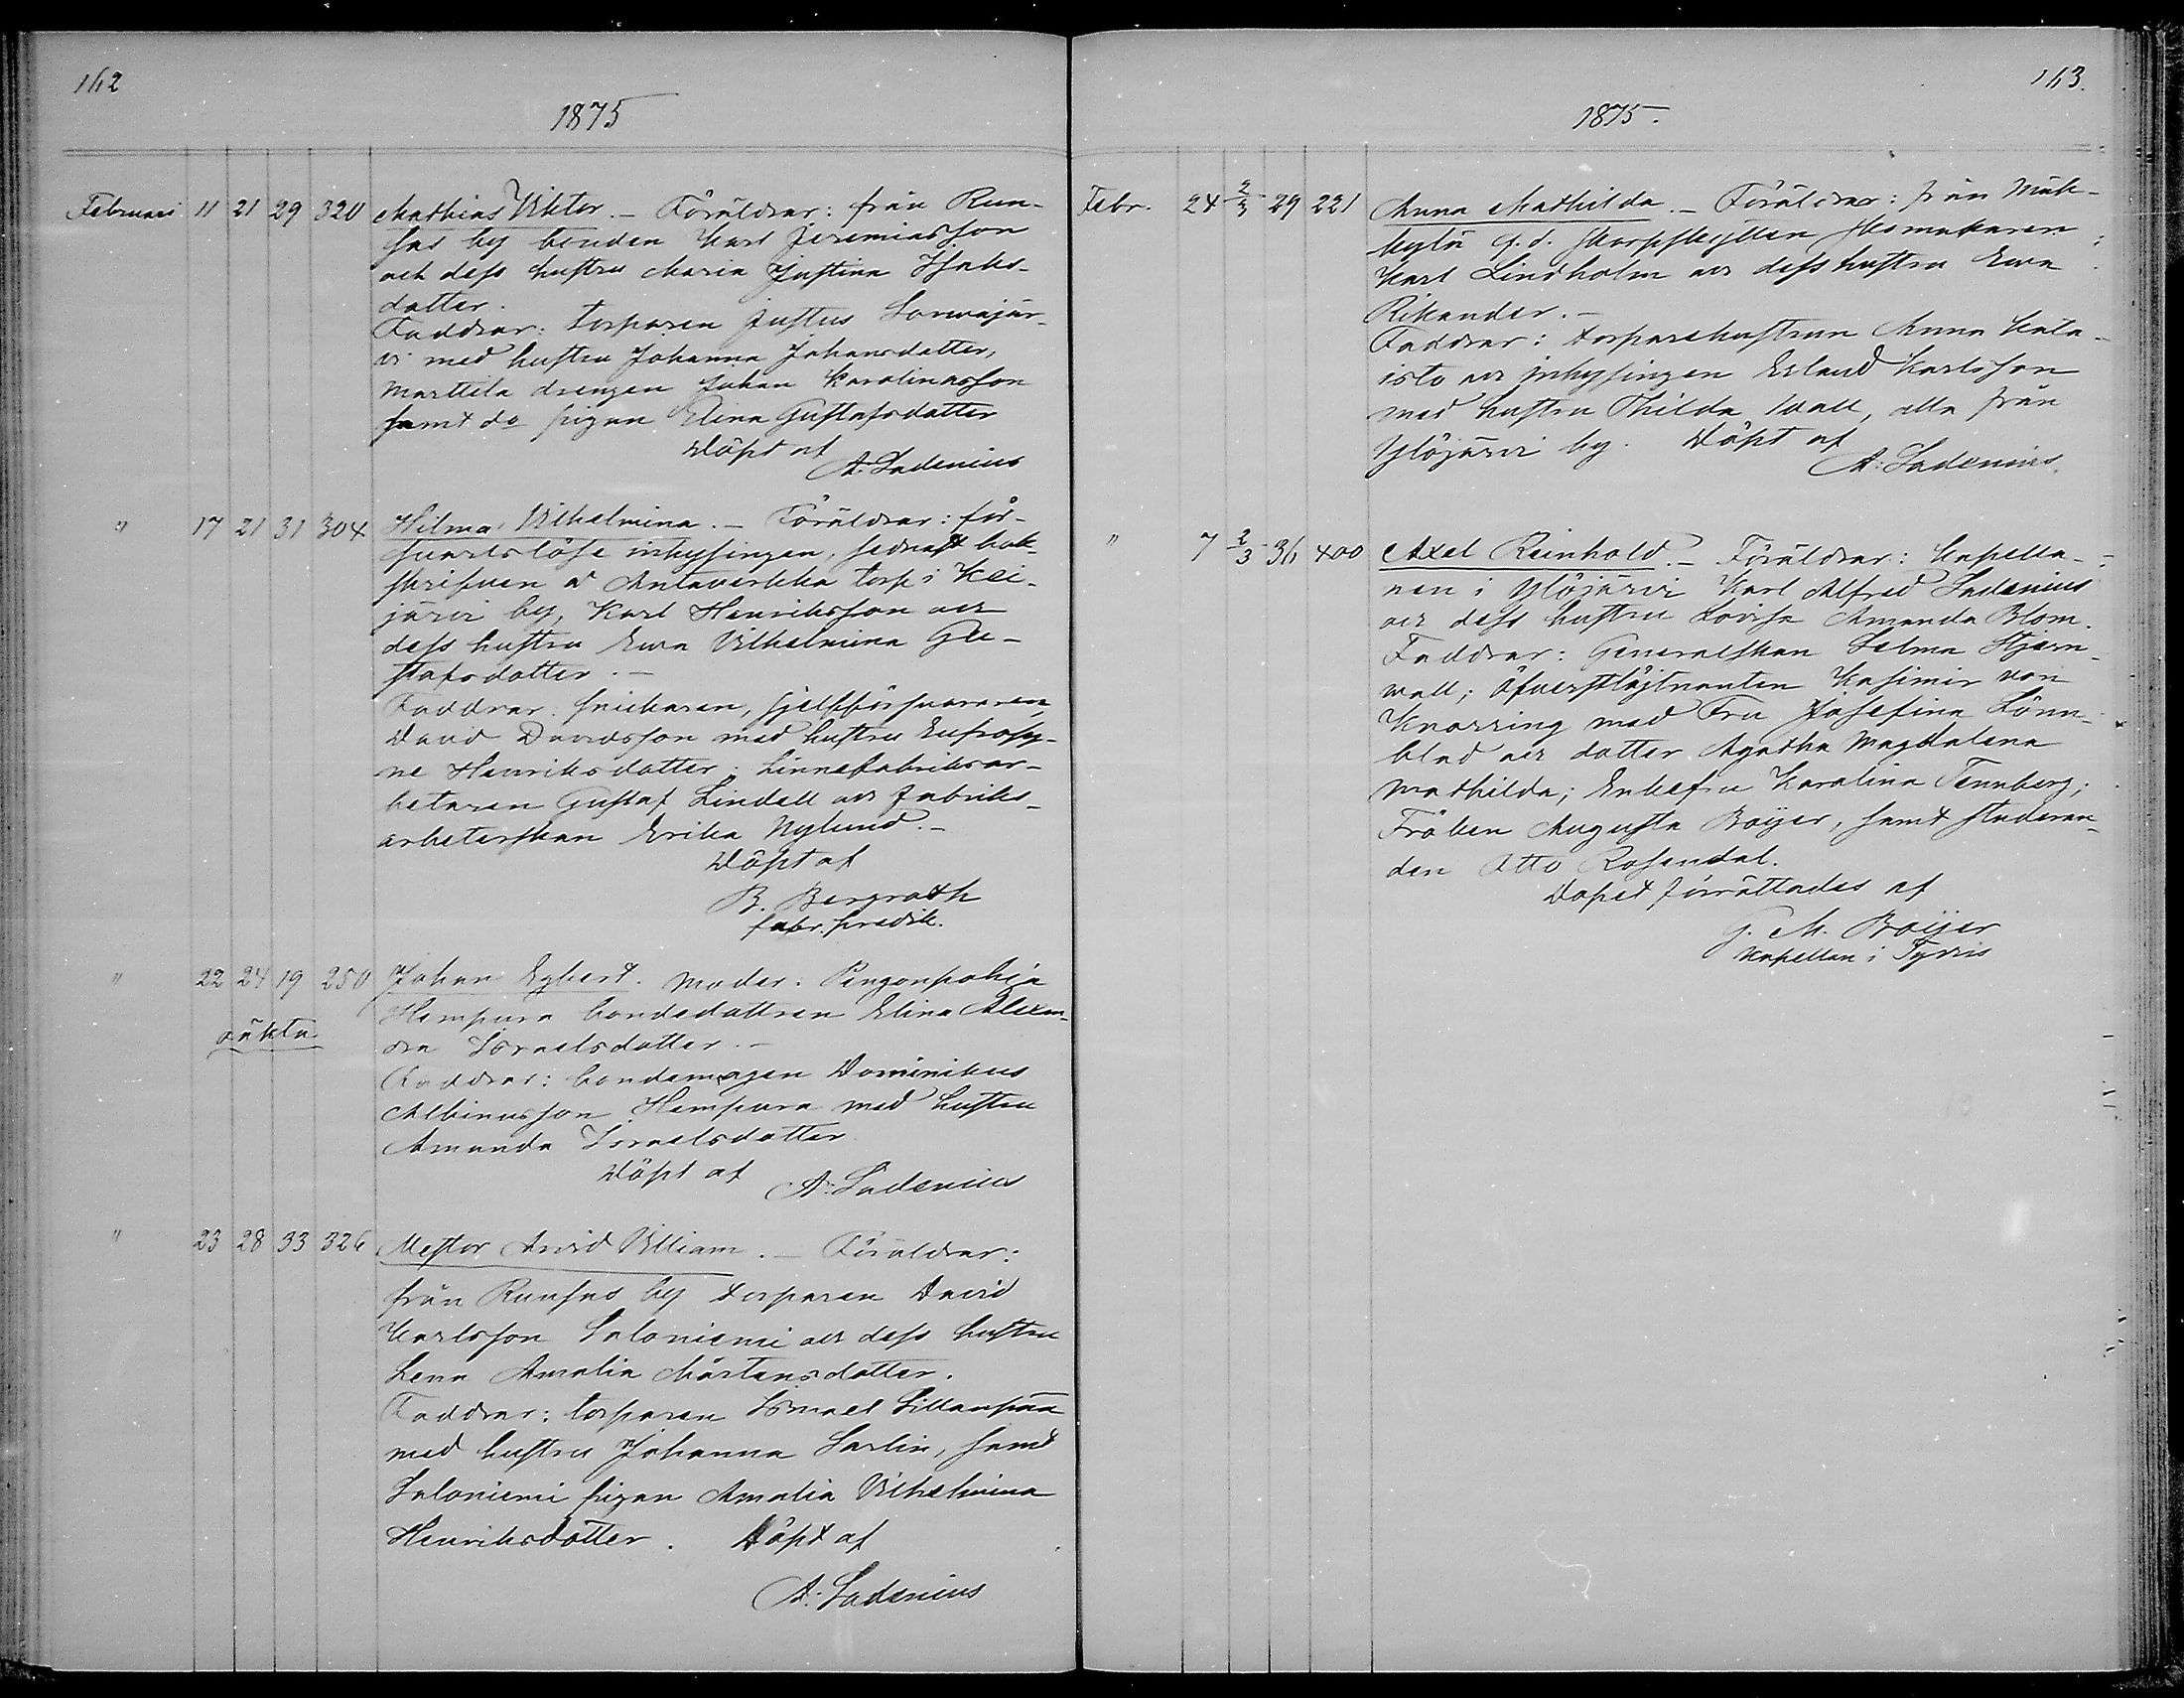 162
1875
Februari 11 21 29 320 Mathias Viktor. – Föräldrar: från Run-
sas by bonden Karl Jeremiasson
och dess hustru Maria Justina Isaks-
dotter.
Faddrar: torparen Justus Sorvajär-
vi med hustru Johanna Johansdotter,
Marttila drengen Johan Karolinasson
samt do pigan Elina Gustafsdotter
Döpt af
A. Ladenius
" 17 21 31 304 Hilma Vilhelmina. – Föräldrar: för-
svarslöse inhysingen, sednast bok-
skrifven å Antaverkka torp i Kei-
järvi by, Karl Henriksson och
dess hustru Eva Vilhelmina Gu-
stafsdotter. –
Faddrar: snickaren, sjelfförsvararen,
David Davidsson med hustru Eufrosy-
ne Henriksdotter; Linnefabriksar-
betaren Gustaf Lindell och fabriks-
arbeterskan Erika Nylund. –
Döpt af
B. Bergroth
fabr. predik.
" 22 24 19 250 Johan Egbert. Moder: Pengonpohja
Hempura bondedottren Elina Alexan-
oäkta
dra Israelsdotter. –
Faddrar: bondemågen Dominikus
Albinusson Hempura med hustru
Amanda Israelsdotter.
Döpt af
A. Ladenius
" 23 28 33 326 Nestor Arvid Villiam. – Föräldrar:
från Runsas by torparen David
Karlsson Saloniemi och dess hustru
Lena Amalia Mårtensdotter.
Faddrar: torparen Ismael Sillanpää
med hustru Johanna Sarlin, samt
Saloniemi pigan Amalia Vilhelmina
Henriksdotter. Döpt af
A. Ladenius
163.
1875.
Febr. 24 2/3 29 221 Anna Mathilda. – Föräldrar: från Mut-
kylä f.d. skarpskytten skomakaren
Karl Lindholm och dess hustru Eva
Rikander. –
Faddrar: torparehustrun Anna Kata-
isto och inhysingen Erland Karlsson
med hustru Thilda Wall, alla från
Ylöjärvi by. Döpt af
A. Ladenius.
" 7 2/3 36 400 Axel Reinhold. – Föräldrar: Kapella-
nen i Ylöjärvi Karl Alfred Ladenius
och dess hustru Lovisa Amanda Blom.
Faddrar: Generalskan Selma Stjern-
vall; Öfverstlöjtnanten Kasimir von
Knorring med Fru Josefina Lönn-
blad och dotter Agatha Magdalena
Mathilda; Enkefru Karolina Tennberg;
Fröken Augusta Boijer, samt studeran-
den Otto Rosendal.
Dopet förrättades af
G. M. Boijer
Kapellan i Tyrvis